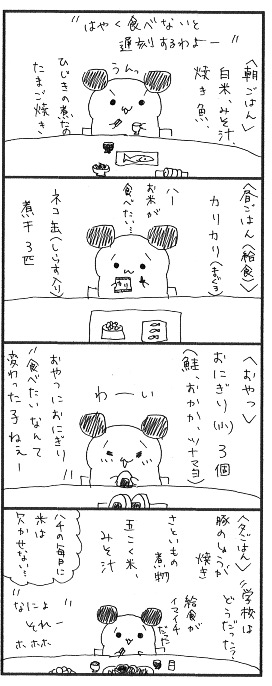 "はやく食べないと
遅刻するわよー"
〈朝ごはん〉
白米、みそ汁、
焼き魚、
うんっ
ひじきの煮たの
たまご焼き、
〈昼ごはん(給食)〉
カリカリ(まぐろ)
ハー
お米が
食べたい…
ネコ缶(しらす入り)
煮干3匹
〈おやつ〉
おにぎり(小)3個
(鮭、おかか、ツナマヨ)
わーい
おやつにおにぎり
食べたいなんて
変わった子ねぇー"
〈夕ごはん〉
豚のしょうが
焼き
さといもの
煮物
五こく米、
みそ汁
"学校は
どうだった?"
給食が
イマイチ
だた
ハチの毎日に
米は
欠かせない…
"なによ
それー
ホホホ"